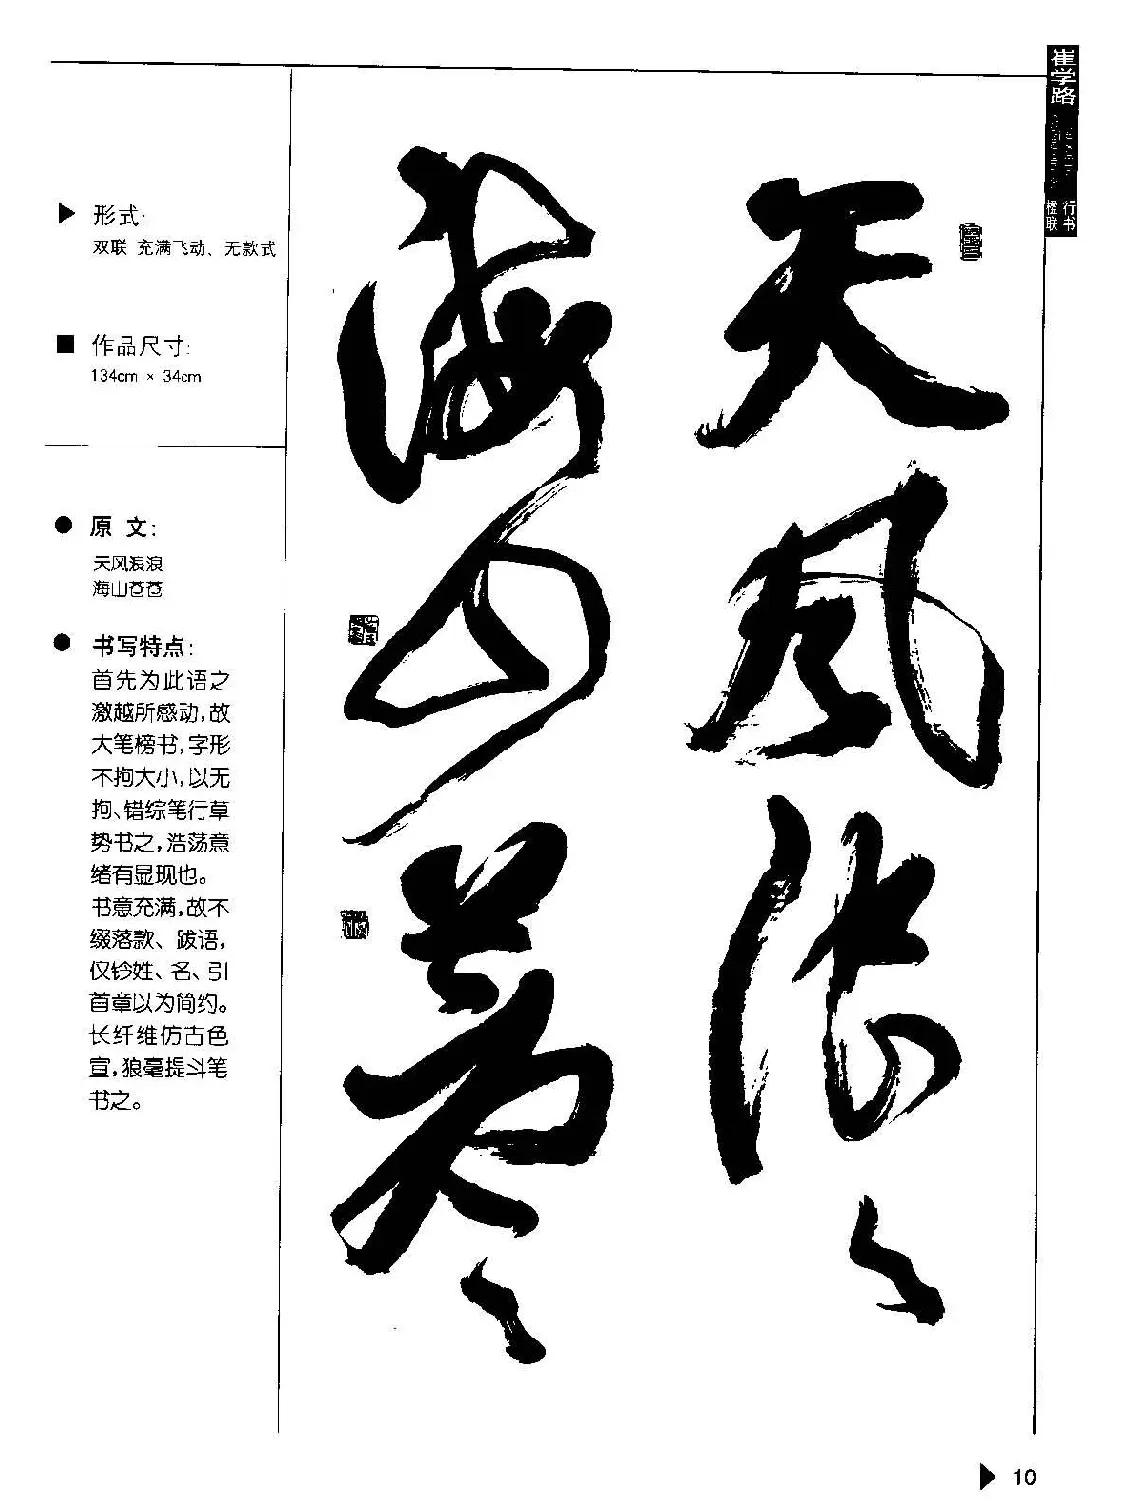 崔学路
行书
楹联
▶ 形式:
双联 充满飞动、无款式
■ 作品尺寸:
134cm × 34cm
● 原 文:
天风浪浪
海山苍苍
● 书写特点:
首先为此语之
激越所感动,故
大笔榜书,字形
不拘大小,以无
拘、错综笔行草
势书之,浩荡意
绪有显现也。
书意充满,故不
缀落款、跋语,
仅钤姓、名、引
首章以为简约。
长纤维仿古色
宣,狼毫提斗笔
书之。
天风浪〻
海山苍〻
▶ 10